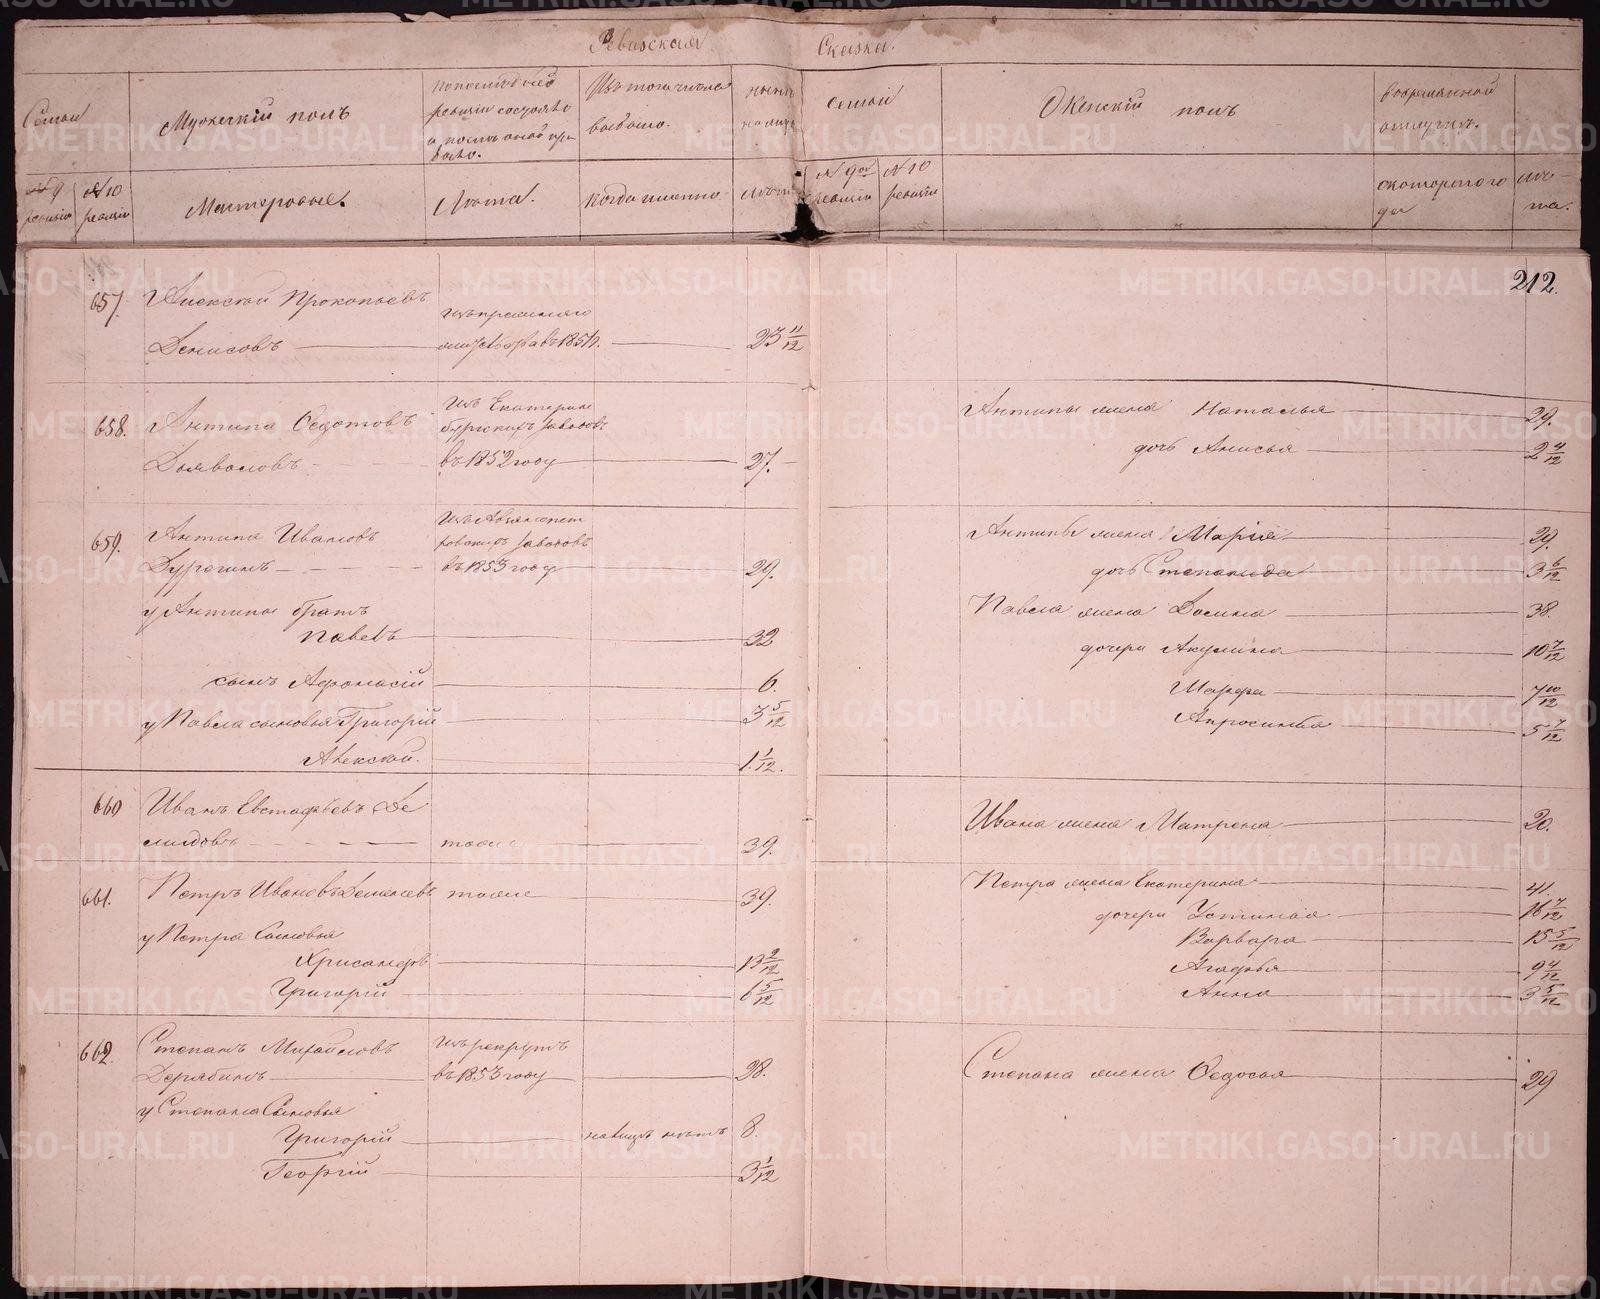 Ревизская Сказка.
Семьи
Мужескій полъ
по последней
ревизіи состояло
и после оной при
было.
Изъ того числа
выбыло.
ныне
на лицо
Семьи
Женскій полъ
во временной
отлучке.
№ 9 ревизіи
№ 10 ревизіи
Мастеровые.
Лета.
Когда именно
лета
№ 9ой ревизіи
№ 10 ревизіи
съ котораго
года
ле-
та.
212.
657. Алексей Прокопьевъ
Денисовъ
въ 1854 г.
23 11/12
658. Антипа Федотовъ
изъ Екатерин
бургскихъ заводовъ
въ 1852 году
27.
Антипы жена Наталья 29.
дочь Анисья 2 4/12
659. Антипа Ивановъ
заводовъ
въ 1853 году
29.
Антипы жена Марія 29.
дочь Степанида 3 6/12
у Антипы братъ
Павелъ 32
Павла жена Домна 38.
дочери Акулина 10 7/12
сынъ Афонасій 6.
Марфа 7 10/12
у Павла сыновья Григорій 3 5/12
Апросинья 5 7/12
Алексей. 1 1/12.
660 Иванъ Евстафьевъ Де
мидовъ тоже 39.
Ивана жена Матрена 20.
661. Петръ Ивановъ Деменевъ тоже 39.
Петра жена Екатерина 41.
дочери Устинья 16 7/12
у Петра Сыновья
Варвара 15 5/12
Хрисанфъ 13 2/12
Агафья 9 4/12
Григорій 6 5/12
Анна 3 5/12
662. Степанъ Михайловъ
Дерябинъ
изъ рекрутъ
въ 1853 году
28.
Степана жена Федосья 29
у Степана Сыновья
Григорій на лицо нетъ 8.
Георгій 3 1/12
METRIKI.GASO-URAL.RU